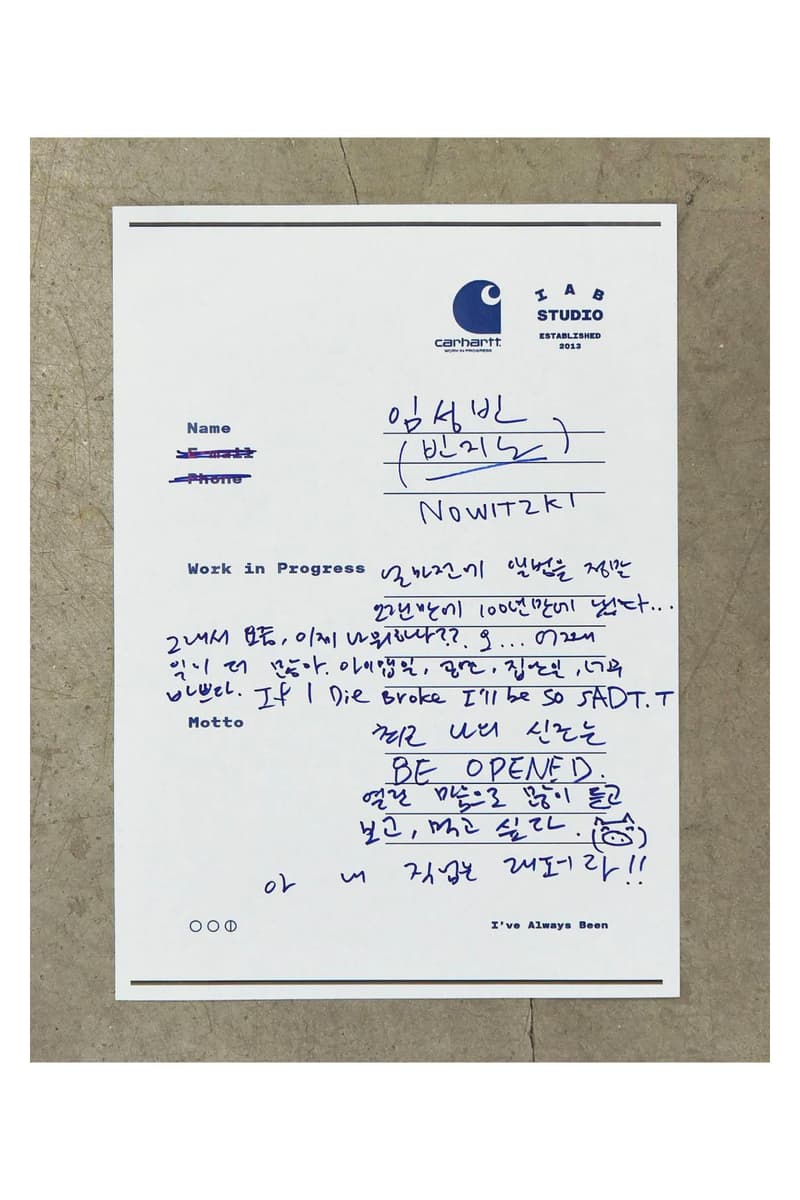 carhartt.
WORK IN PROGRESS
IAB
STUDIO
ESTABLISHED
2013
Name
임성빈
E-mail
(빈지노)
Phone
NOWITZKI
Work in Progress
얼마전에 앨범을 정말
오랜만에 100년만에 냈다...
그래서 보통, 이제 나위하나??. 오... 어째
일이 더 많아. 아이앱일, 공연, 집안일, 너무
바쁘다. If I Die Broke I'll be so SADT.T
Motto
최근 나의 신조는
BE OPENED.
열린 마음으로 많이 듣고
보고, 먹고 싶다.
아 내 직업은 래퍼다!!
I've Always Been